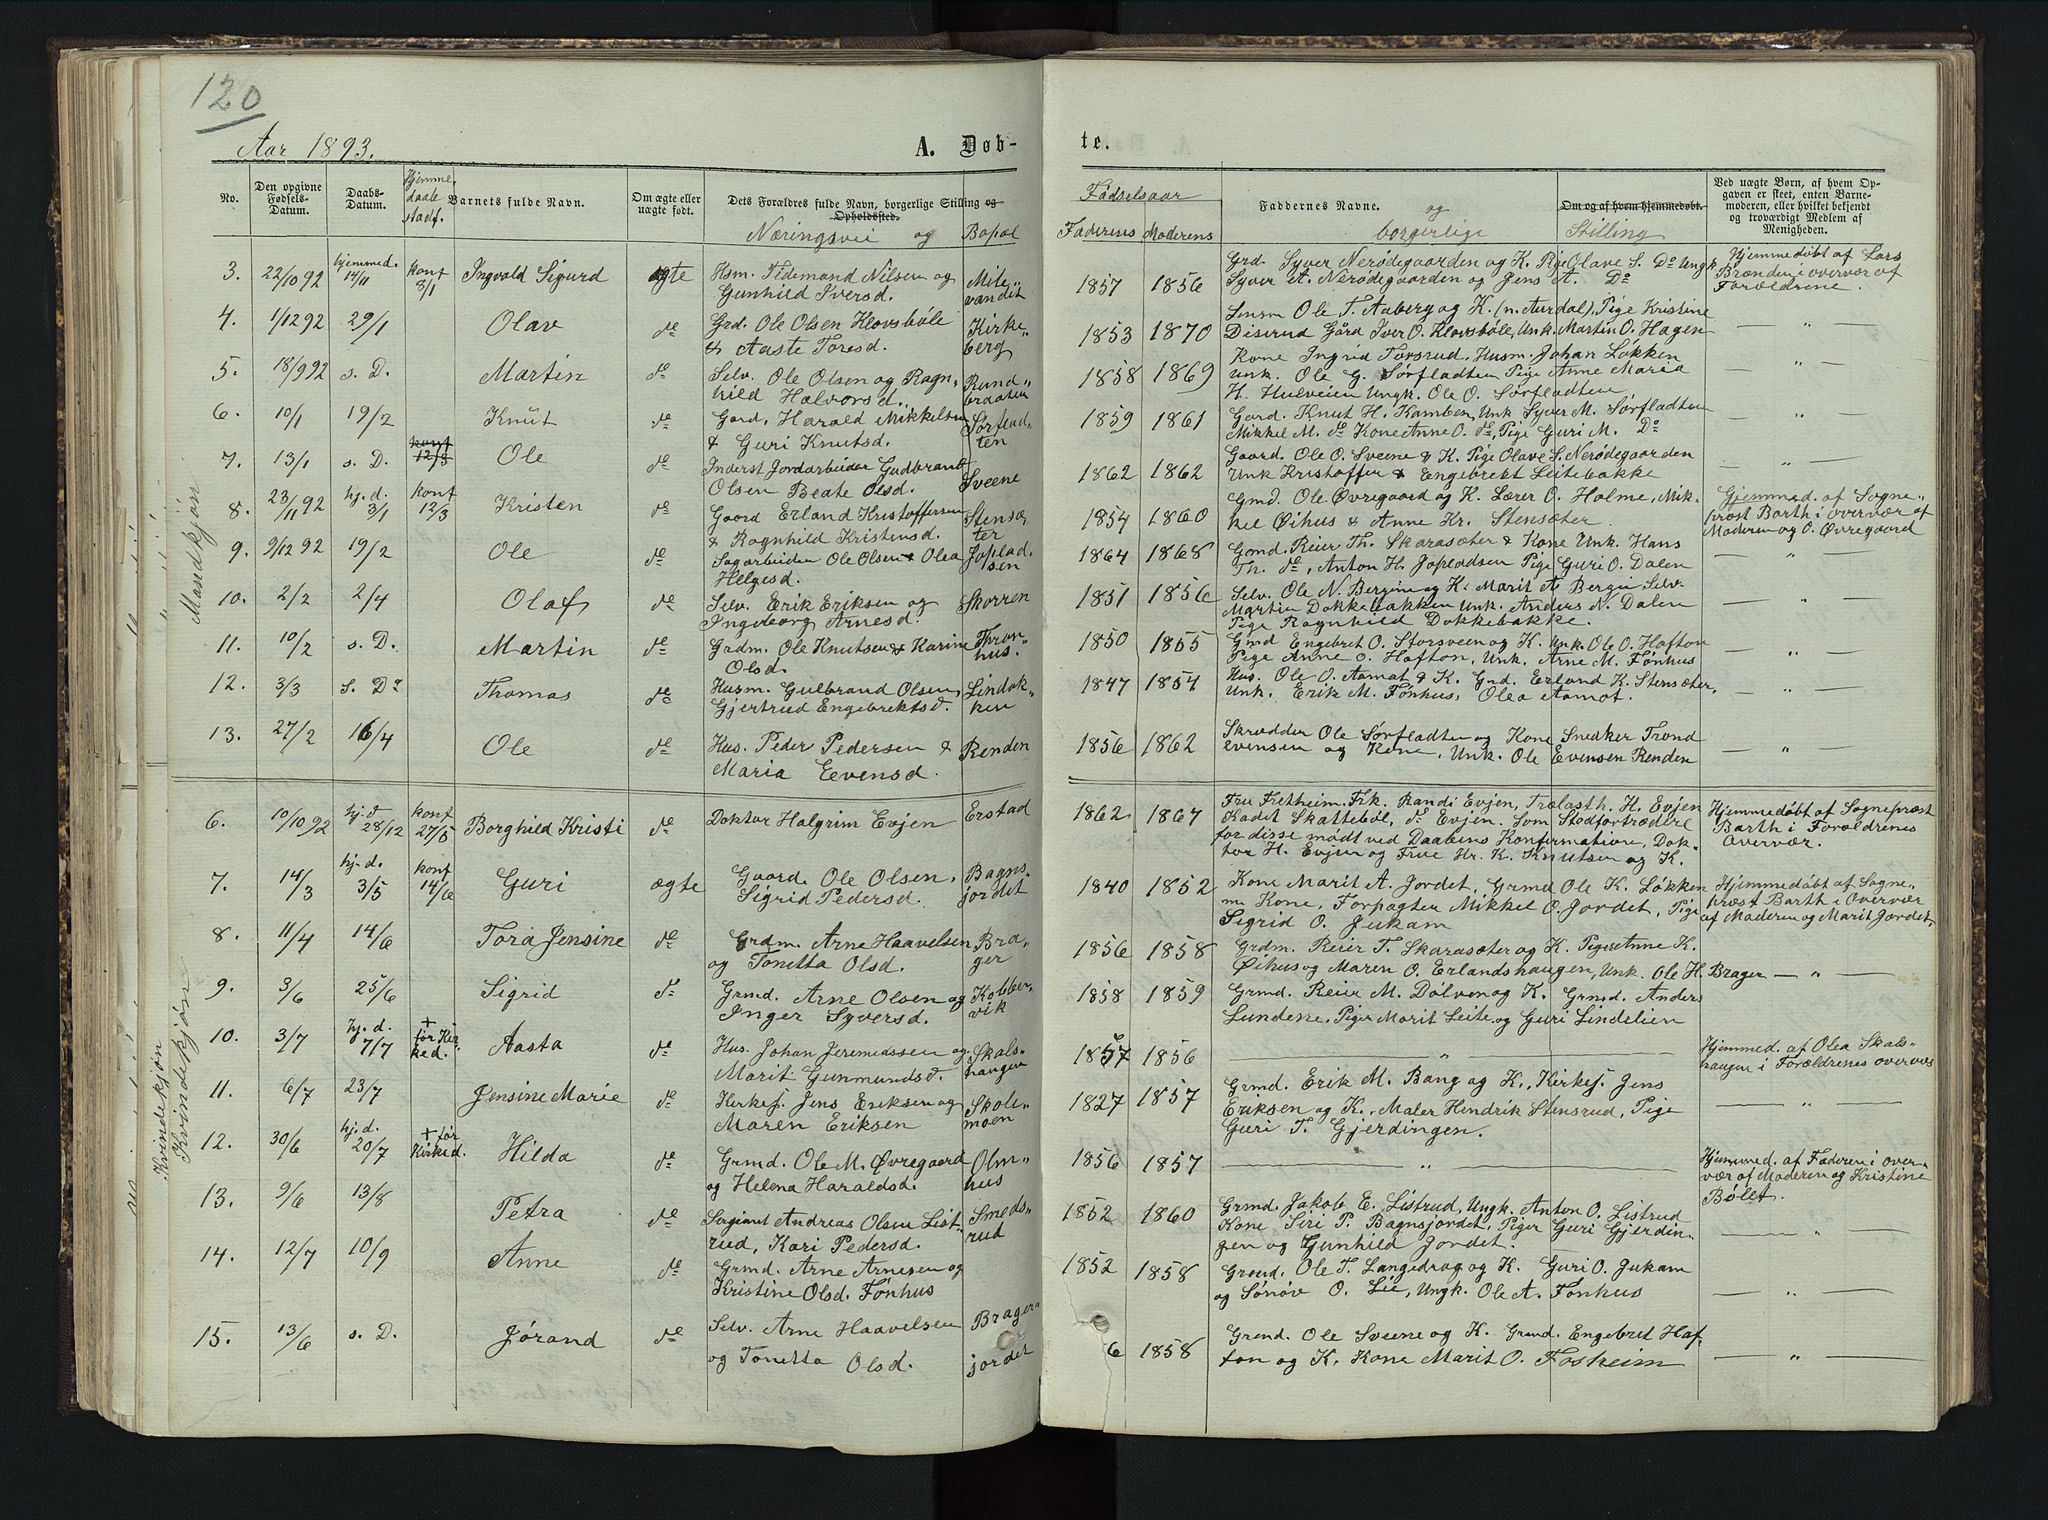 120
Aar 1893.
A. Døb-
te.
No.
Den opgivne Fødsels-Datum.
Daabs-Datum.
Hjemme-daabs stadf.
Barnets fulde Navn.
Om ægte eller uægte født.
Dets Forældres fulde Navn, borgerlige Stilling og Opholdssted.
Næringsvei og Bopæl
Fødselsaar
Faderens Moderens
Faddernes Navne. og
borgerlige Stilling
Om og af hvem hjemmedøbt.
Ved uægte Børn, af hvem Op-
gaven er skeet, enten Barne-
moderen, eller hvilket bekjendt
og troværdigt Medlem af
Menigheden.
Mandkjøn
3. 22/10 92 hjemmed. 14/11 konf 8/1 Ingvald Sigurd ægte Hsm. Tidemand Nilsen og
Gunhild Iversd. Mile-vandit
1857 1856 Grd. Syver Nerødegaarden og K. Pige Olave S. Do Ungk
Syver A. Nerødegaarden og Jens A. Do
Hjemmedøbt af Lars
Brænden i overvær af
Forældrene.
4. 1/12 92 29/1 Olav do Grd. Ole Olsen Klovsbøle
& Aaste Toresd. Kirke-berg
1853 1870 Lensm Ole T. Aaberg og K. (n. Aurdal), Pige Kristine
Diserud Gård Iver O. Klovsbøle, Unk. Martin O. Hagen
— " —
5. 18/9 92 s. D. Martin do Selv. Ole Olsen og Ragn-
hild Halvorsd. Rund-braaten
1858 1869 Kone Ingrid Torsrud, Husm. Johan Løkken
Unk. Ole G. Sørfladten Pige Anne Maria
H. Hulveien Ungk. Ole O. Sørfladten
— " —
6. 10/1 19/2 Knut do Gard. Harald Mikkelsen
& Guri Knutsd. Sørflad-ten
1859 1861 Gard. Knut H. Kamben, Unk Syver M. Sørfladten
Mikkel M. do Kone Anne O. do, Pige Guri M. Do
— " —
7. 13/1 s. D. konf 12/3 Ole do Inderst Jordarbeider Gudbrand
Olsen Beate Olsd. Sveene
1862 1862 Gaard. Ole O. Sveene & K. Pige Olave S. Nerødegaarden
Unk Kristoffer & Engebrekt Leitebakke
— " —
8. 23/11 92 hj. d. 3/1 konf 12/3 Kristen do Gaard Erland Kristoffersen
& Ragnhild Kristensd. Stensæ-ter
1854 1860 Gmd. Ole Øvregaard og K. Lærer O. Holme, Mik-
kel Øihus & Anne Kr. Stensæter.
Hjemmed. af Sogne-
præst Barth i overvær af
Moderen og O. Øvregaard
9. 9/12 92 19/2 Ole do Sagarbeider Ole Olsen & Olea
Helgesd. Joplad-sen
1864 1868 Gmd. Reier Th. Skarasæter & Kone Unk. Hans
Th. do, Anton H. Jopladsen Pige Guri O. Dalen
— " —
10. 2/2 2/4 Olaf do Selv. Erik Eriksen og
Ingeborg Arnesd. Skorren
1851 1856 Selv. Ole N. Bergine og K. Marit A. Bergin Selv.
Martin Dokkebakken Unk. Anders N. Dalen
Pige Ragnhild Dokkebakke.
— " —
11. 10/2 s. D. Martin do Gadm. Ole Knutsen & Karine
Olsd. Thron-hus.
1850 1855 Gmd Engebret O. Storsveen og K. Unk. Ole O. Hafton
Pige Anne O. Hafton, Unk. Arne M. Fønhus
— " —
12. 3/3 s. Do Thomas do Husm. Gulbrand Olsen,
Gjertrud Engebrektsd. Lindøk-ken
1847 1854 Hus. Ole O. Aamot & K. Gnd. Erland K. Stensæter,
Unk. Erik M. Fønhus, Olea Aamot.
— " —
13. 27/2 16/4 Ole do Hus. Peder Pedersen &
Maria Evensd. Renden
1856 1862 Skrædder Ole Sørfladten og Kone Snedker Trond
Evensen og Kone, Unk. Ole Evensen Renden
— " —
Kvindekjøn
Kvindekjøn
6. 10/10 92 hj. d 28/12 konf 27/5 Borghild Kristi do Doktor Halgrim Evjen Erstad
1862 1867 Fru Fretheim. Frk. Randi Evjen, Trælasth. H. Evjen
Kadet Skattebøl, do Evjen. Som Stedfortrædere
for disse mødt ved Daabens Konfirmatione, Dok-
tor H. Evjen og Frue Hr. K. Knutsen og K.
Hjemmedøbt af Sognepræst
Barth i Forældrenes
Overvær.
7. 14/3 hj. d. 3/5 konf 14/6 Guri ægte Gaard. Ole Olsen,
Sigrid Pedersd. Bagns-jordet
1840 1852 Kone Marit A. Jordet, Grmd Ole K. Løkken
m Kone, Forpagter Mikkel O. Jordet, Pige
Sigrid O. Jukam
Hjemmedøbt af Sogne-
præst Barth i Overvær
af Moderen og Marit Jordet,
8. 11/4 14/6 Tora Jensine do Grdm. Arne Haavelsen
og Tonetta Olsd. Bra-ger
1856 1858 Grdm. Reier T. Skarasæter og K. Pigen Anne K.
Øihus og Maren O. Erlandshaugen, Unk. Ole H. Brager — " —
9. 3/6 25/6 Sigrid do Grmd. Arne Olsen og
Inger Syversd. Kolber-vik
1858 1859 Grmd. Reier M. Dølven og K. Grmd. Anders
Lundene. Piger Marit Leite og Guri Lindelien
10. 3/7 hj. d. 7/7 + før Kir-ked. Aasta do Hus. Johan Jeremiassen og
Marit Gunmundsd. Skals-haugen
1857 1856 — " —
Hjemmed. af Olea Skals-
haugen i Forældrenes overvær
11. 6/7 23/7 Jensine Marie do Kirkesj. Jens Eriksen og
Maren Eriksen Skole-moen
1827 1857 Grmd. Erik M. Bang og K., Kirkesj. Jens
Eriksen og K., Maler Hendrik Stensrud, Pige
Guri T. Gjerdingen.
— " —
12. 30/6 hj. d. 20/7 + før Kirked. Hilda do Grmd. Ole M. Øvregaard
og Helena Haraldsd. Olm-hus
1856 1857 — " —
Hjemmed. af Faderen i over-
vær af Moderen og Kristine
Bølet.
13. 9/6 13/8 Petra do Sergiant Andreas Olsen List-
rud, Kari Pedersd. Smeds-rud
1852 1860 Grmd. Jakob E. Listrud, Ungk. Anton O. Listrud
Kone Siri P. Bagnsjordet, Piger Guri Gjerdin-
gen og Gunhild Jordet.
— " —
14. 12/7 10/9 Anne do Grmd. Arne Arnesen og
Kristine Olsd. Fønhus
1852 1858 Grmd. Ole T. Langedrag og K. Guri O. Jukam
og Sønøv O. Lie, Ungk. Ole A. Fønhus
— " —
15. 13/6 s. D. Jørand do Selv. Arne Haavelsen
og Tonetta Olsd. Brager-jordet
6 1858 Grmd. Ole Sveene og K. Grmd. Engebret Haf-
ton og K. Kone Marit O. Fosheim
— " —